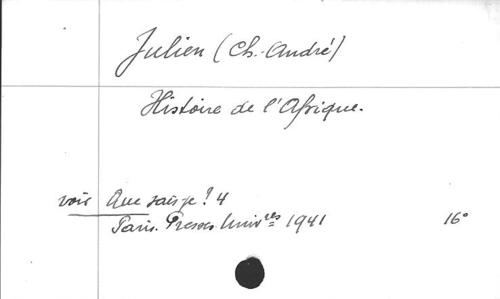 Julien (Ch.-André)
Histoire de l'Afrique.
voir Que sais je? 4
Paris. Presses Univres 1941 16°